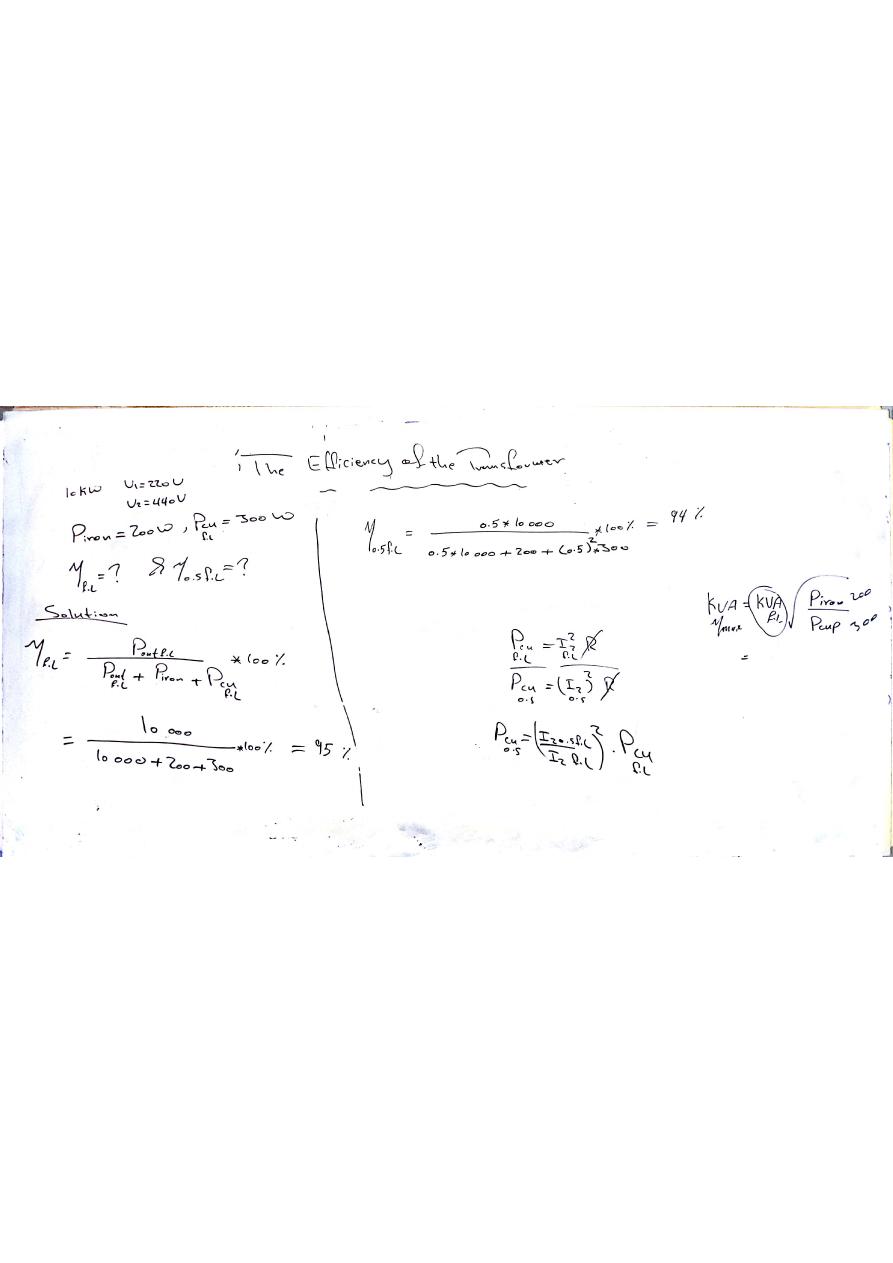 The Efficiency of the Transformer
10 KW U1=220U
U2=440U
Piron=200W, Pcu f.L=300W
ηf.L=? & η0.5f.L=?
Solution
ηf.L = Pout f.L / (Pout f.L + Piron + Pcu f.L) * 100%
= 10 000 / (10 000+200+300) *100% = 95 %
η0.5f.L = 0.5*10000 / (0.5*10 000 + 200 + (0.5)²*300) *100% = 94 %
Pcu f.L = I2² f.L R
Pcu 0.5 = (I2)² 0.5 R
Pcu 0.5 = (I2 0.5f.L / I2 f.L)² . Pcu f.L
KVA ηmax = KVA f.L √(Piron 200 / Pcup 300)
=